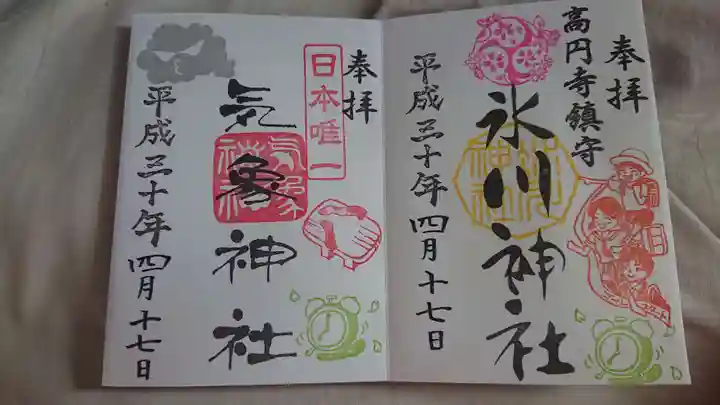 奉拝
高円寺鎮守
氷川神社
平成三十年四月十七日
奉拝
日本唯一
気象神社
平成三十年四月十七日
気象神社